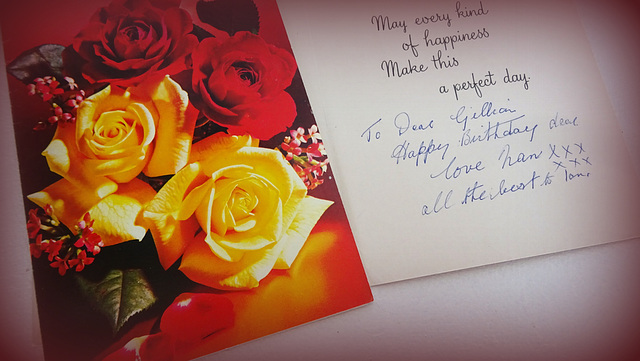 May every kind
of happiness
Make this
a perfect day.
To Dear Gillian
Happy Birthday dear
love Nan xxx
xxx
all the best to